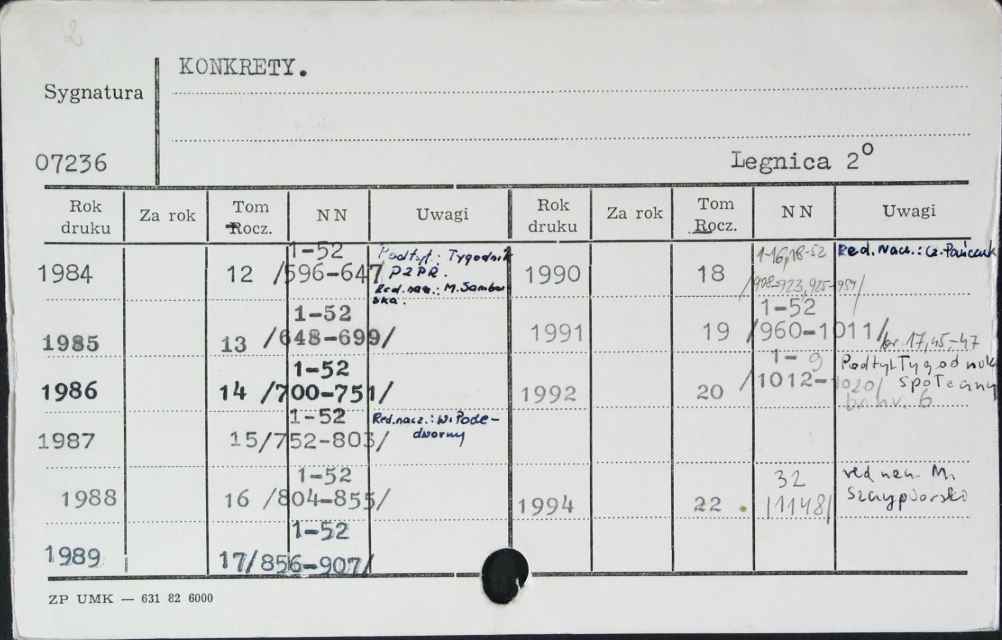 2
KONKRETY.
Sygnatura
07236
Legnica 2°
Rok druku Za rok Tom Rocz. NN Uwagi Rok druku Za rok Tom Rocz. NN Uwagi
1984 12 1-52 /596-647/ Podtyt.: Tygodnik PZPR. Red. nacz.: M. Sambor ska.
1990 18 1-16,18-52 /908-923,925-959/ Red. nacz.: Cz. Pańczuk
1985 13 1-52 /648-699/
1991 19 1-52 /960-1011/ br. 17,45-47
1986 14 1-52 /700-751/
1992 20 1-9 /1012-1020/ Podtyt. Tygodnik społeczny br. nr. 6
1987 15 1-52 /752-803/ Red.nacz.: W. Pode-dworny
1988 16 1-52 /804-855/
1994 22 32 /1148/ red. M.
1989 17 1-52 /856-907/
ZP UMK — 631 82 6000